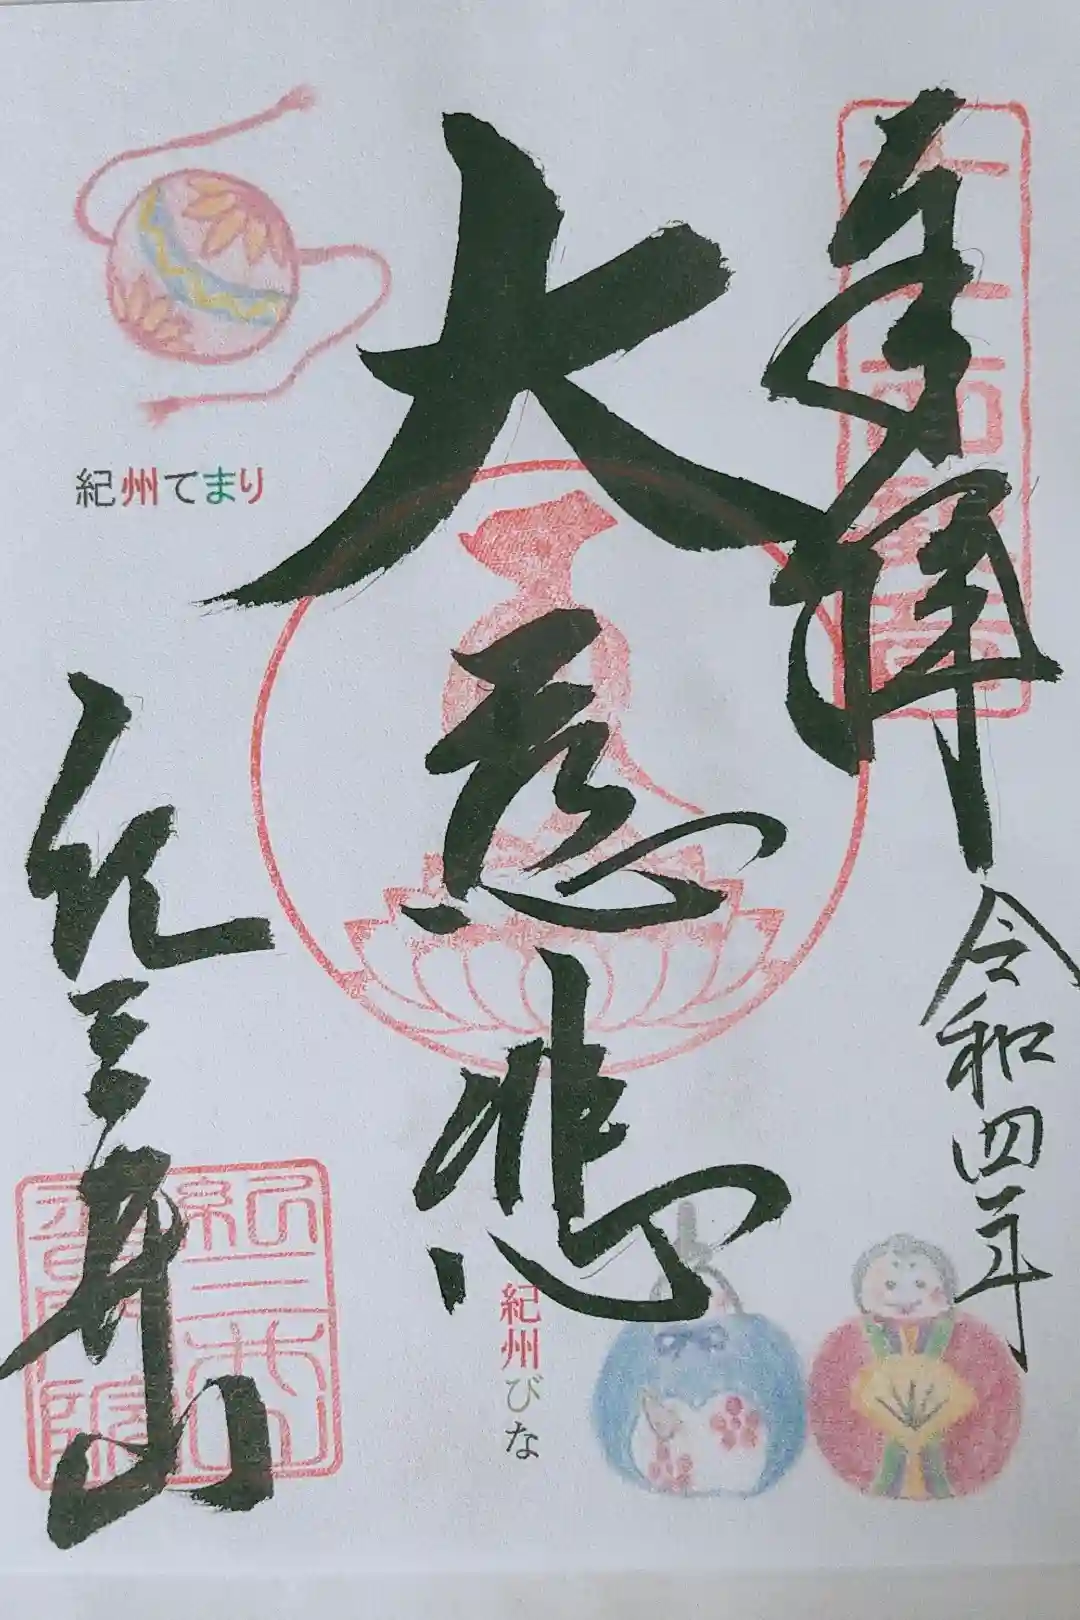 奉拝
令和四年
大慈悲
紀三井山
紀州てまり
紀州びな
紀三井山